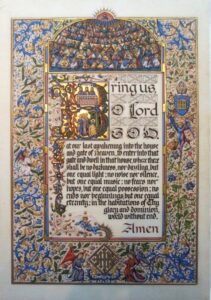 Bring us,
O Lord
GOD
at our last awakening into the house
and gate of Heaven, to enter into that
gate and dwell in that house, where there
shall be no darkness, nor dazzling, but
one equal light; no noise nor silence,
but one equal music; no fears nor
hopes, but one equal possession; no
ends nor beginnings but one equal
eternity; in the habitations of Thy
glory and dominion,
world without end.
Amen